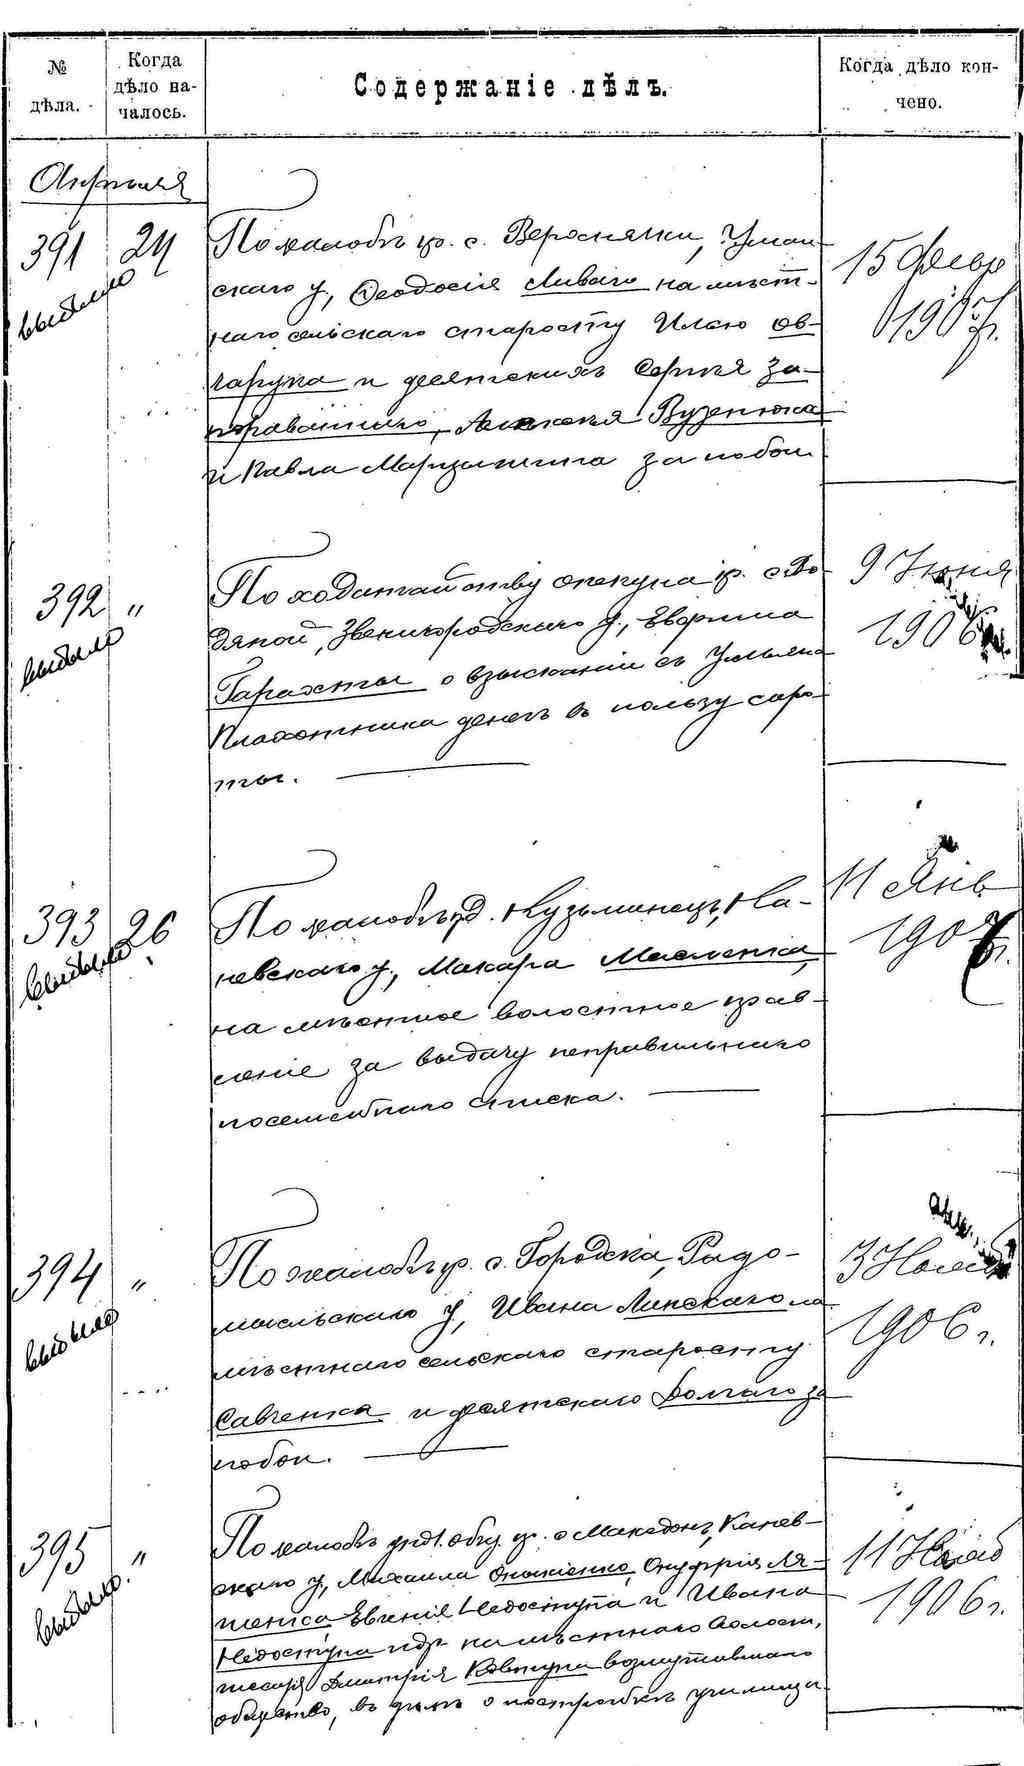 № дѣла.
Когда дѣло началось.
Содержаніе дѣлъ.
Когда дѣло кончено.
Апрѣля
391 24 выбыло
По жалобѣ кр. с. Веросняжки, Уман-
скаго у., Ѳеодосія Ливаго на мѣст-
наго сельскаго старосту Илью Ов-
чарука и десятскихъ Сергѣя За-
Алексѣя
и Павла за побои.
15 Февр
1907 г.
392 " выбыло
По ходатайству опекуна кр. с. Во-
дяной, Звенигородскаго у.,
о взысканіи съ Ульяна
Плахотника денегъ въ пользу сиро-
ты.
9 Іюня
1906 г.
393 26 выбыло
По жалобѣ кр. д. Кузьминецъ, Ка-
невскаго у., Макара Масленка,
на мѣстное волостное прав-
леніе за выдачу неправильнаго
посемейнаго списка.
11 Янв
1907 г.
394 " выбыло
По жалобѣ кр. с. Городска, Радо-
мысльскаго у., Ивана Липскаго на
мѣстнаго сельскаго старосту
Савченка и десятскаго Долгаго за
побои.
3 Нояб
1906 г.
395 " выбыло.
По жалобѣ кр. с. Македонъ, Канев-
скаго у., Михаила Онуфрія Ля-
шенка Евгенія Недоступа и Ивана
Недоступа на мѣстнаго волостн.
писаря Дмитрія Ковтуна возмутившаго
общество, въ дѣлѣ о постройкѣ училища.
11 Нояб
1906 г.